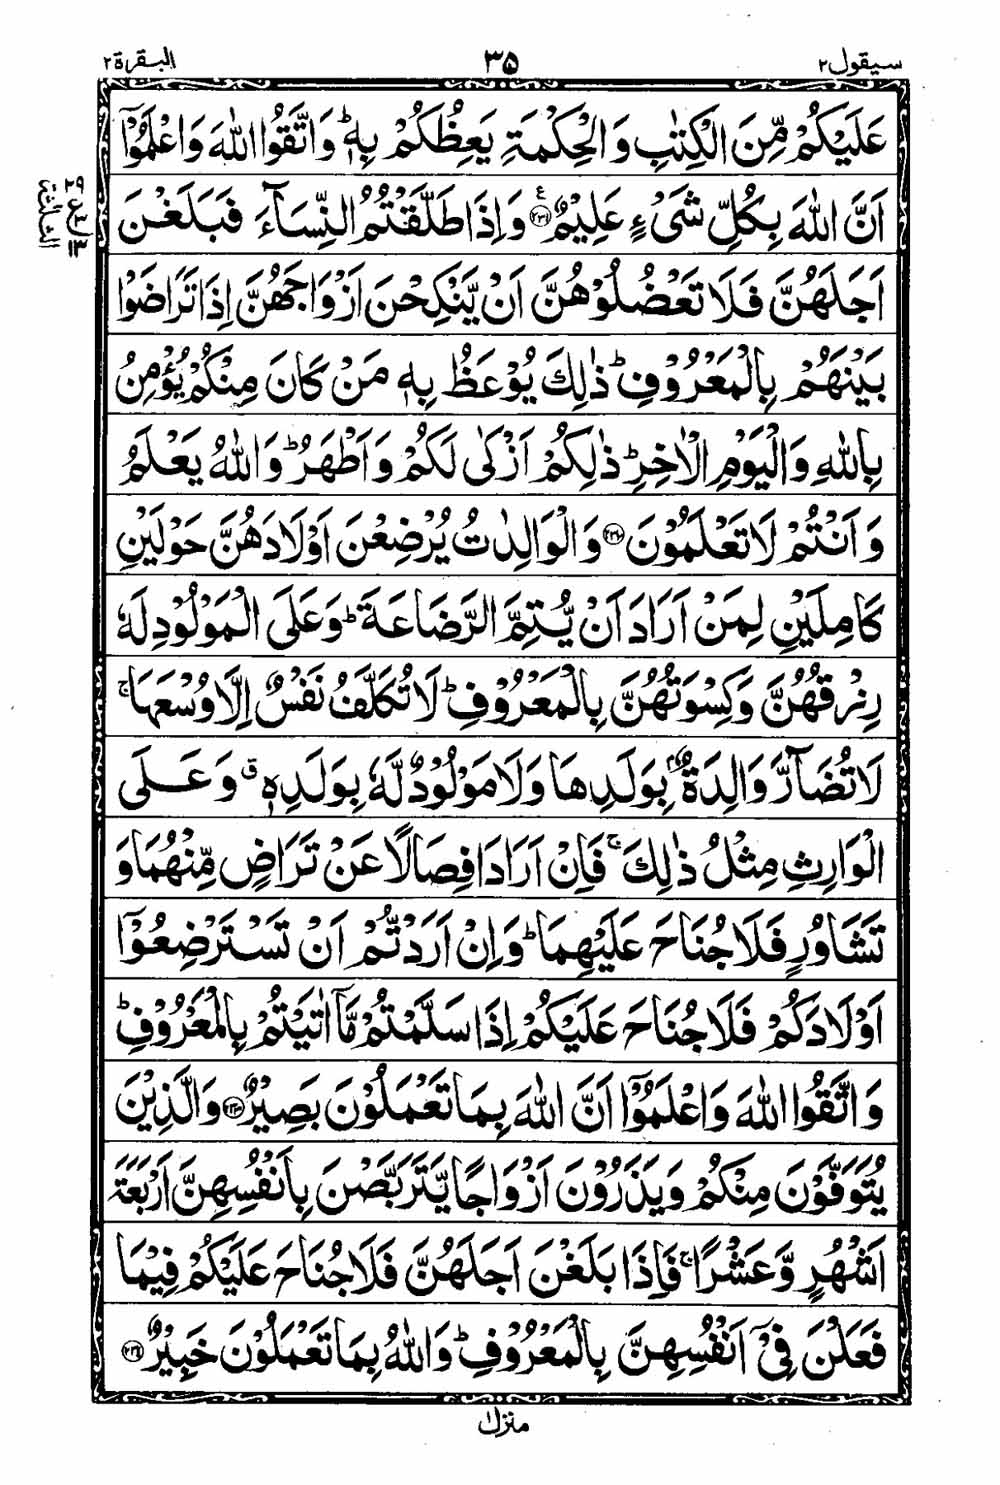 سيقول ٢
٣٥
البقرة ٢
عَلَيْكُمْ مِّنَ الْكِتٰبِ وَ الْحِكْمَةِ يَعِظُكُمْ بِهٖ ؕ وَ اتَّقُوا اللّٰهَ وَ اعْلَمُوْۤا
اَنَّ اللّٰهَ بِكُلِّ شَیْءٍ عَلِیْمٌ ﴿۲۳۱﴾ ع وَ اِذَا طَلَّقْتُمُ النِّسَآءَ فَبَلَغْنَ
٢٩
ع
١٣
الثلٰثة
اَجَلَهُنَّ فَلَا تَعْضُلُوْهُنَّ اَنْ یَّنْكِحْنَ اَزْوَاجَهُنَّ اِذَا تَرَاضَوْا
بَیْنَهُمْ بِالْمَعْرُوْفِ ؕ ذٰلِكَ یُوْعَظُ بِهٖ مَنْ كَانَ مِنْكُمْ یُؤْمِنُ
بِاللّٰهِ وَ الْیَوْمِ الْاٰخِرِ ؕ ذٰلِكُمْ اَزْكٰی لَكُمْ وَ اَطْهَرُ ؕ وَ اللّٰهُ یَعْلَمُ
وَ اَنْتُمْ لَا تَعْلَمُوْنَ ﴿۲۳۲﴾ وَ الْوَالِدٰتُ یُرْضِعْنَ اَوْلَادَهُنَّ حَوْلَیْنِ
كَامِلَیْنِ لِمَنْ اَرَادَ اَنْ یُّتِمَّ الرَّضَاعَةَ ؕ وَ عَلَی الْمَوْلُوْدِ لَهٗ
رِزْقُهُنَّ وَ كِسْوَتُهُنَّ بِالْمَعْرُوْفِ ؕ لَا تُكَلَّفُ نَفْسٌ اِلَّا وُسْعَهَا ۚ
لَا تُضَآرَّ وَالِدَةٌۢ بِوَلَدِهَا وَ لَا مَوْلُوْدٌ لَّهٗ بِوَلَدِهٖ ۗ وَ عَلَی
الْوَارِثِ مِثْلُ ذٰلِكَ ۚ فَاِنْ اَرَادَا فِصَالًا عَنْ تَرَاضٍ مِّنْهُمَا وَ
تَشَاوُرٍ فَلَا جُنَاحَ عَلَیْهِمَا ؕ وَ اِنْ اَرَدْتُّمْ اَنْ تَسْتَرْضِعُوْۤا
اَوْلَادَكُمْ فَلَا جُنَاحَ عَلَیْكُمْ اِذَا سَلَّمْتُمْ مَّاۤ اٰتَیْتُمْ بِالْمَعْرُوْفِ ؕ
وَ اتَّقُوا اللّٰهَ وَ اعْلَمُوْۤا اَنَّ اللّٰهَ بِمَا تَعْمَلُوْنَ بَصِیْرٌ ﴿۲۳۳﴾ وَ الَّذِیْنَ
یُتَوَفَّوْنَ مِنْكُمْ وَ یَذَرُوْنَ اَزْوَاجًا یَّتَرَبَّصْنَ بِاَنْفُسِهِنَّ اَرْبَعَةَ
اَشْهُرٍ وَّ عَشْرًا ۚ فَاِذَا بَلَغْنَ اَجَلَهُنَّ فَلَا جُنَاحَ عَلَیْكُمْ فِیْمَا
فَعَلْنَ فِیْۤ اَنْفُسِهِنَّ بِالْمَعْرُوْفِ ؕ وَ اللّٰهُ بِمَا تَعْمَلُوْنَ خَبِیْرٌ ﴿۲۳۴﴾
منزل ١